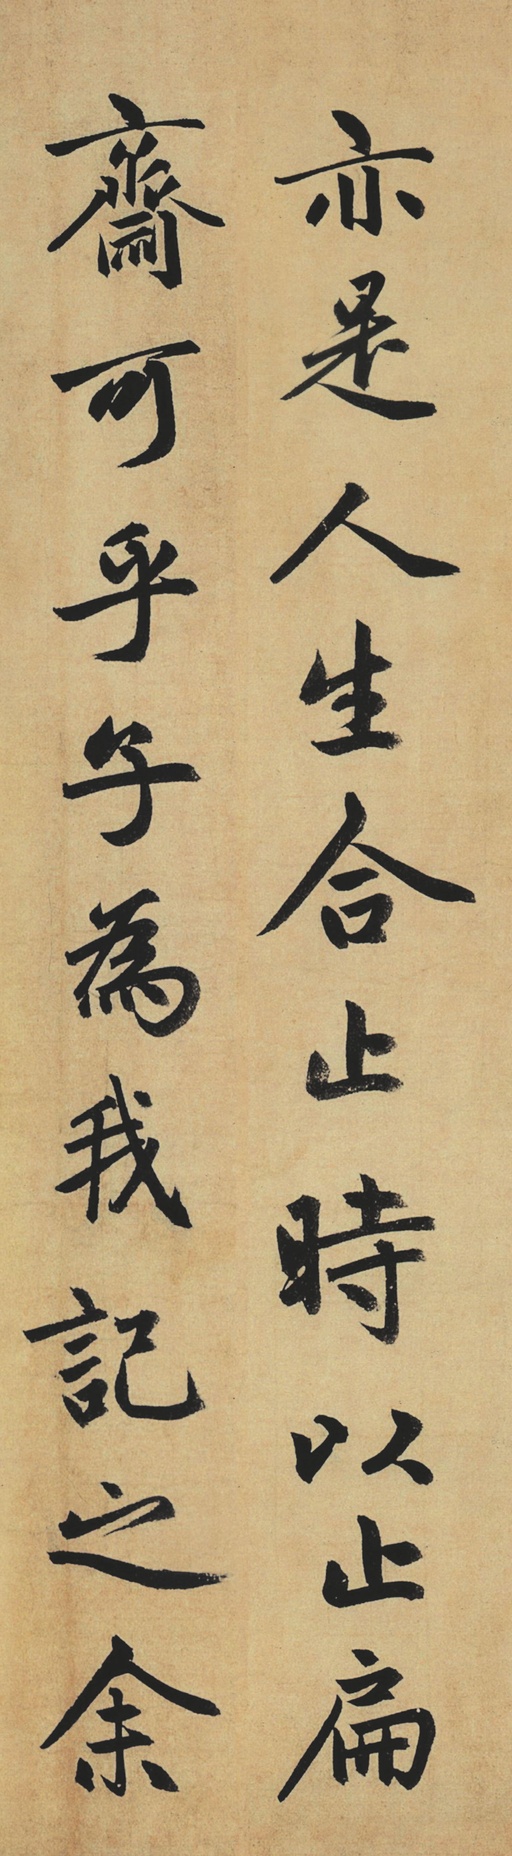 亦是人生合止時以止扁
齋可乎子為我記之余